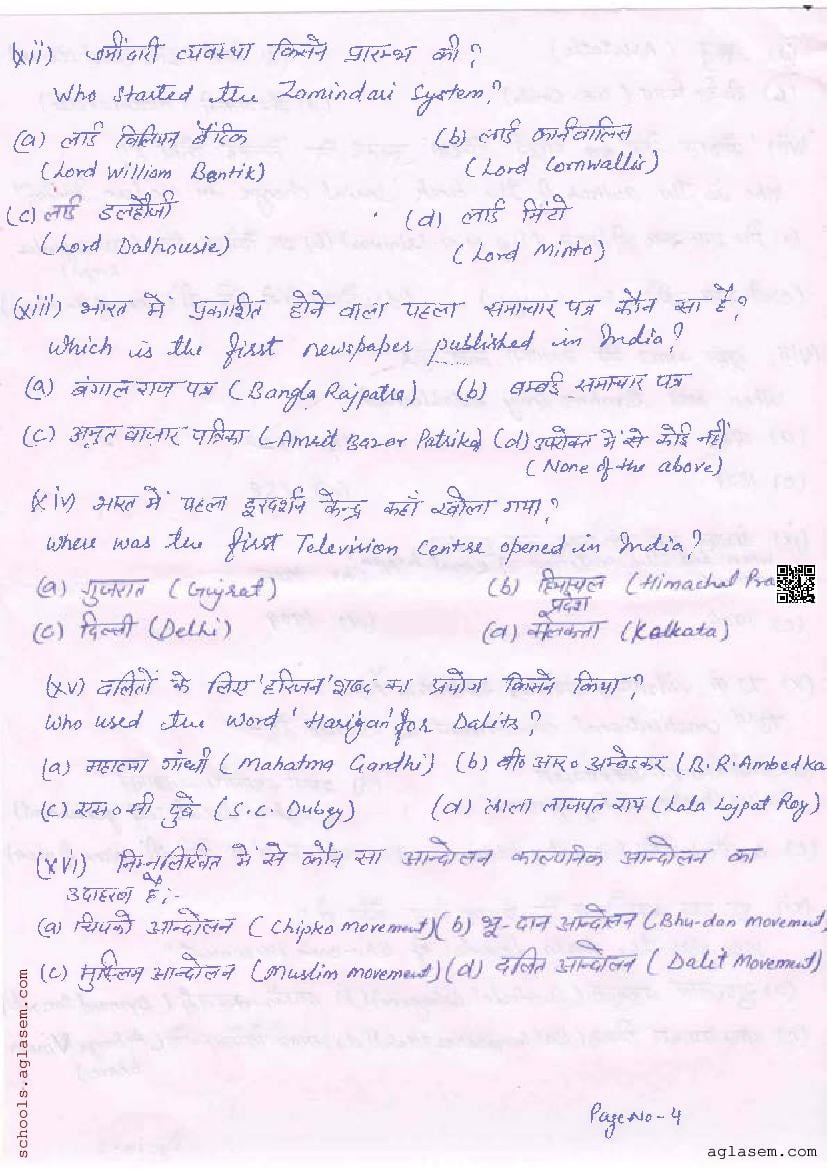 (xii) जमींदारी व्यवस्था किसने प्रारम्भ की?
Who started the Zamindari System?
(a) लार्ड विलियम बैंटिक (b) लार्ड कार्नवालिस
(Lord William Bentik) (Lord Cornwallis)
(c) लार्ड डलहौजी (d) लार्ड मिंटो
(Lord Dalhousie) (Lord Minto)
(xiii) भारत में प्रकाशित होने वाला पहला समाचार पत्र कौन सा है?
Which is the first newspaper published in India?
(a) बंगाल राज पत्र (Bangla Rajpatra) (b) बम्बई समाचार पत्र
(c) अमृत बाज़ार पत्रिका (Amrit Bazar Patrika) (d) उपरोक्त में से कोई नहीं
(None of the above)
(xiv) भारत में पहला दूरदर्शन केन्द्र कहाँ खोला गया?
Where was the first Television Centre opened in India?
(a) गुजरात (Gujrat) (b) हिमाचल प्रदेश (Himachal Pra
(c) दिल्ली (Delhi) (d) कोलकता (Kolkata)
(xv) दलितों के लिए 'हरिजन' शब्द का प्रयोग किसने किया?
Who used the word 'Harijan' for Dalits?
(a) महात्मा गाँधी (Mahatma Gandhi) (b) बी० आर० अम्बेडकर (B.R. Ambedka
(c) एस० सी दुबे (S.C. Dubey) (d) लाला लाजपत राय (Lala Lajpat Roy)
(xvi) निम्नलिखित में से कौन सा आन्दोलन काल्पनिक आन्दोलन का
उदाहरण है:-
(a) चिपको आन्दोलन (Chipko movement) (b) भू-दान आन्दोलन (Bhu-dan Movement)
(c) मुस्लिम आन्दोलन (Muslim movement) (d) दलित आन्दोलन (Dalit Movement)
Page No - 4
schools.aglasem.com
aglasem.com